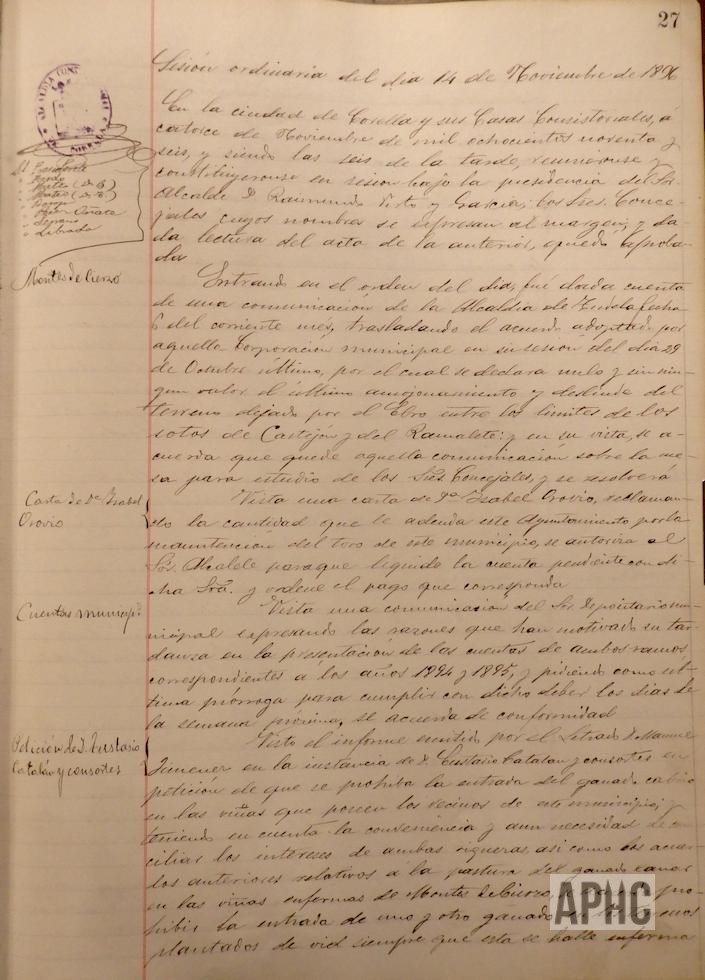 27
Sesión ordinaria del dia 14 de Noviembre de 1896
En la ciudad de Corella y sus Casas Consistoriales, á
catorce de Noviembre de mil ochocientos noventa y
seis, y siendo las seis de la tarde, reunieronse y
constituyeronse en sesion bajo la presidencia del Sr.
Alcalde D. Raimundo Virto y Garcia, los Sres. Conce-
jales cuyos nombres se expresan al margen, y da-
da lectura del acta de la anterior, quedó aproba-
da
Sr. Presidente
Oñate
Serrano
Librada
Montes de Cierzo
Entrando en el orden del dia, fué dada cuenta
de una comunicación de la Alcaldia de Tudela fecha
6 del corriente mes, trasladando el acuerdo adoptado por
aquella Corporación municipal en su sesión del dia 29
de Octubre último, por el cual se declara nulo y sin nin-
gun valor el último amojonamiento y deslinde del
terreno dejado por el Ebro entre los limites de los
sotos de Castejón y del Ramalete: y en su vista, se a-
cuerda que quede aquella comunicación sobre la me-
sa para estudio de los Sres. Concejales, y se resolverá
Carta de Dª Isabel
Orovio
Vista una carta de Dª Isabel Orovio, reclaman-
do la cantidad que le adeuda este Ayuntamiento por la
manutención del toro de este municipio, se autoriza al
Sr. Alcalde para que liquide la cuenta pendiente con di-
cha Sra. y ordene el pago que corresponda
Cuentas municip.
Vista una comunicacion del Sr. Depositario mu-
nicipal expresando las razones que han motivado su tar-
danza en la presentación de las cuentas de ambos ramos,
correspondientes á los años 1894 y 1895, y pidiendo como úl-
tima prórroga para cumplir con dicho deber los dias de
la semana próxima, se acuerda de conformidad
Petición de D. Eustasio
Catalán y consortes
Visto el informe emitido por el Letrado D. Manuel
Jimenez en la instancia de D. Eustasio Catalan y consortes en
petición de que se prohiba la entrada del ganado cabrio
en las viñas que poseen los vecinos de este municipio; y
teniendo en cuenta la conveniencia y aun necesidad de con-
ciliar los intereses de ambas riquezas, asi como los acuer-
dos anteriores relativos á la pastura del ganado lanar
en las viñas enfermas de Montes de Cierzo, pro-
hibir la entrada de uno y otro ganado en
plantados de vid siempre que esta se halle enferma
APHC